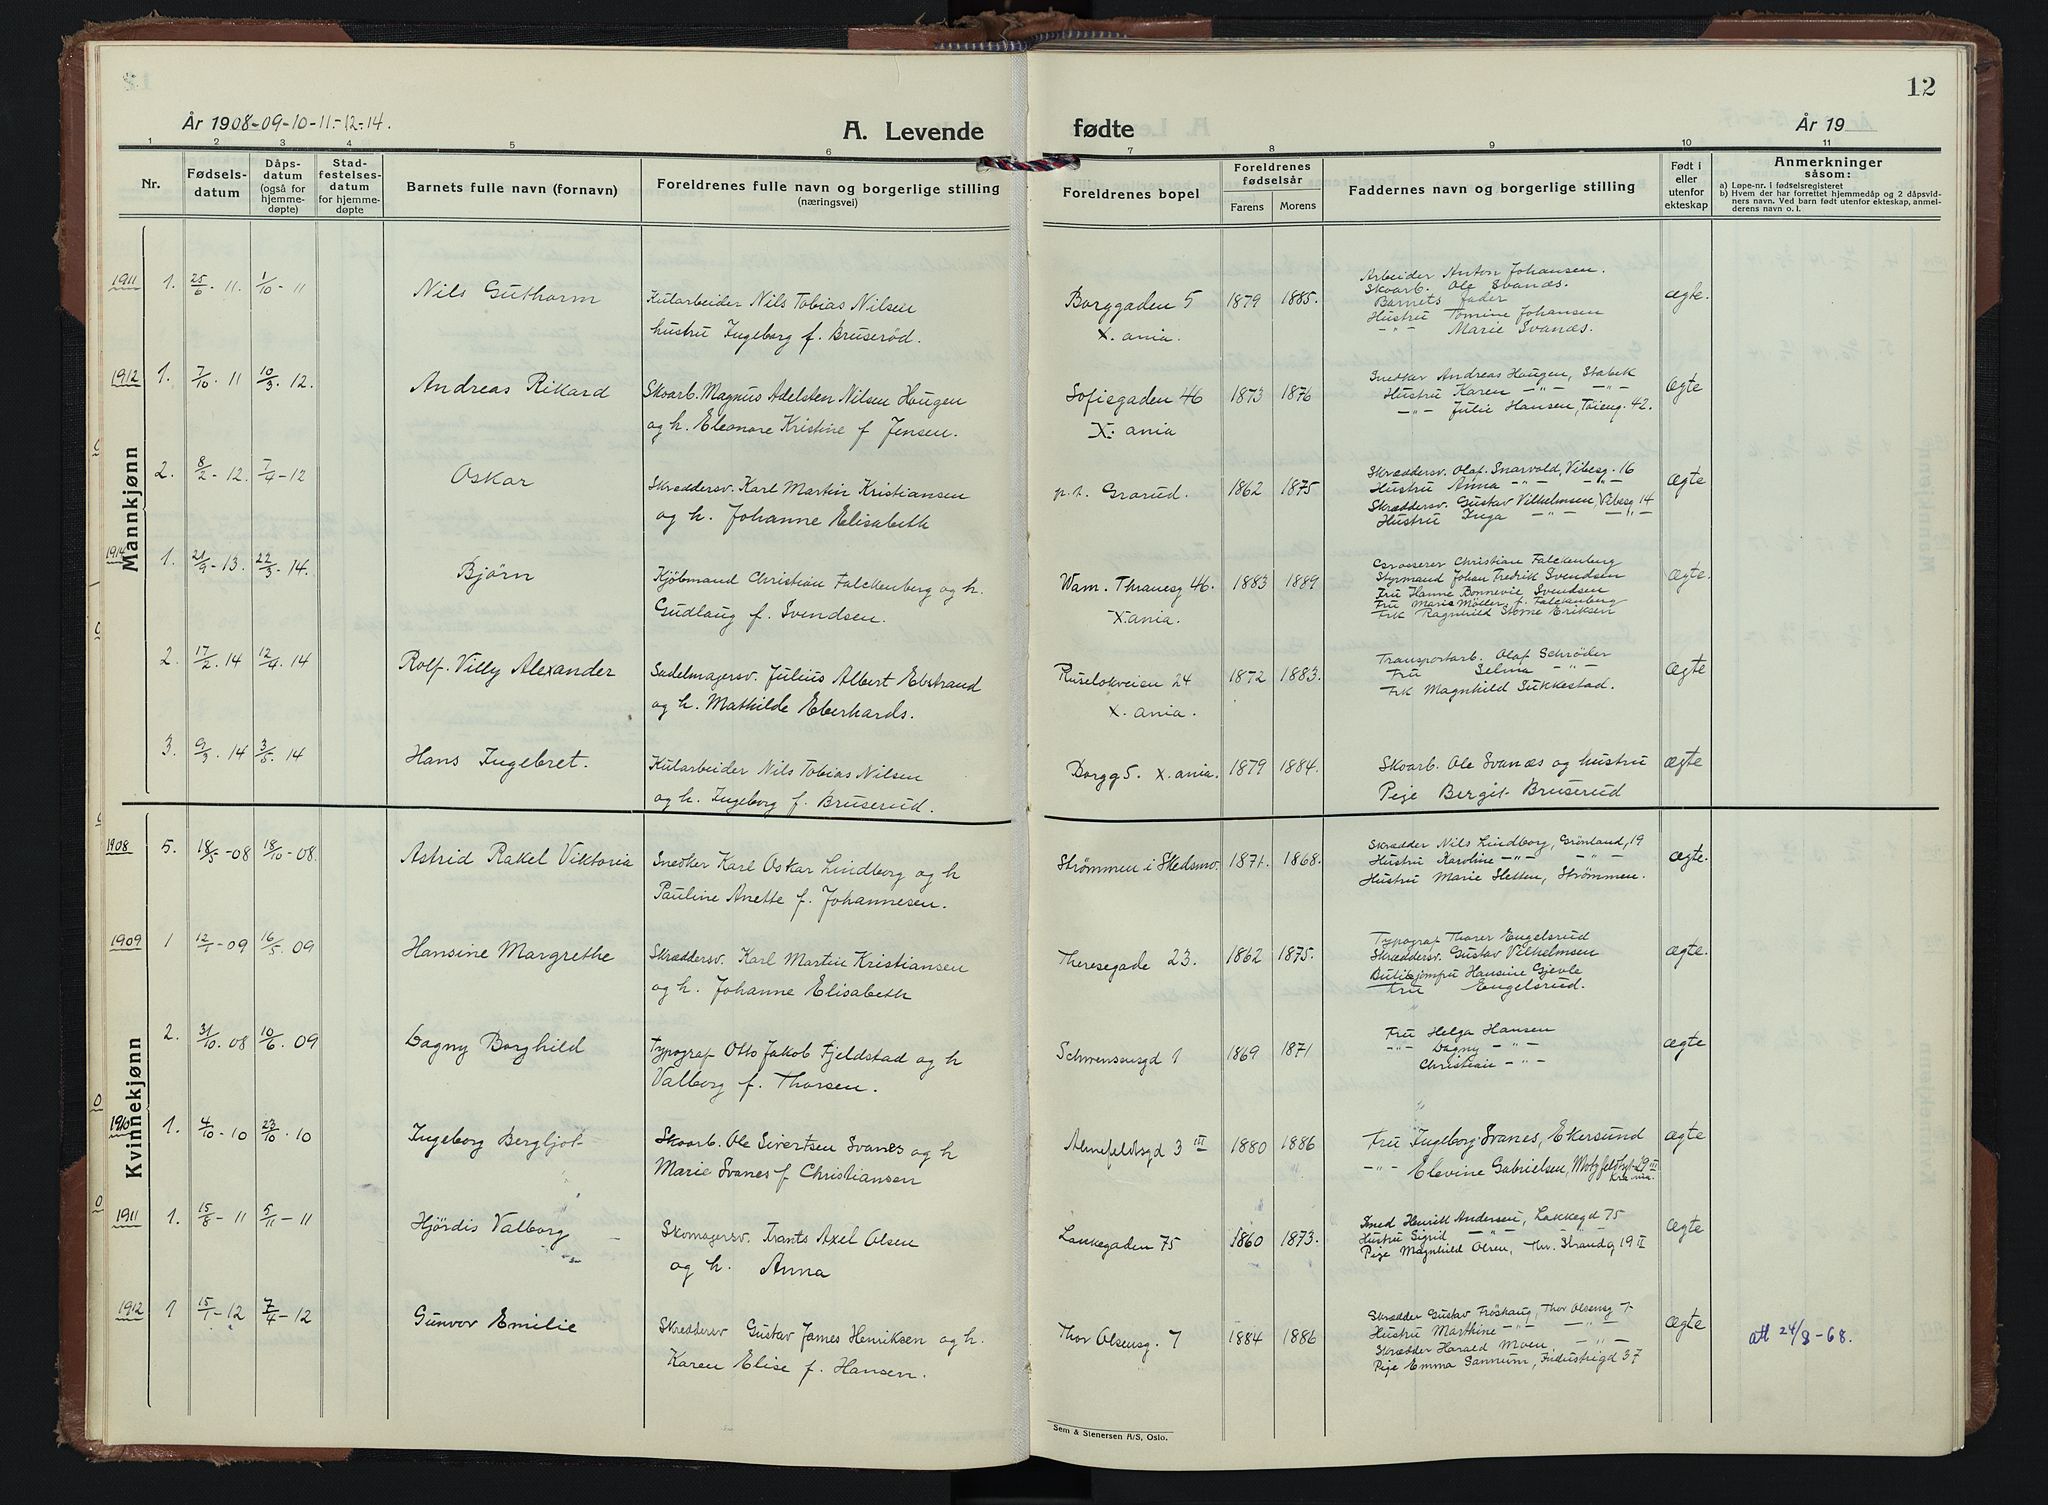 12
År 1908-09-10-11-12-14.
A. Levende fødte
År 19
1 2 3 4 5 6 7 8 9 10 11
Nr.
Fødsels-
datum
Dåps-
datum
(også for
hjemme-
døpte)
Stad-
festelses-
datum
for hjemme-
døpte
Barnets fulle navn (fornavn)
Foreldrenes fulle navn og borgerlige stilling
(næringsvei)
Foreldrenes bopel
Foreldrenes
fødselsår
Farens Morens
Faddernes navn og borgerlige stilling
Født i
eller
utenfor
ekteskap
Anmerkninger
såsom:
a) Løpe-nr. i fødselsregisteret
b) Hvem der har forrettet hjemmedåp og 2 dåpsvid-
ners navn. Ved barn født utenfor ekteskap, anmel-
derens navn o. l.
Mannkjønn
1911 1. 25/6 - 11. 1/10 - 11 Nils Guthorm
Kularbeider Nils Tobias Nilsen
hustru Ingeborg f. Bruserød.
Borggaden 5
X.ania.
1879 1885.
Arbeider Anton Johansen.
Skoarb. Ole Svanæs.
Barnets fader
Hustru Tomine Johansen
-"- Marie Svanæs.
ægte.
1912 1. 7/10 - 11 10/3 - 12. Andreas Rikard
Skoarb. Magnus Adelsten Nilsen Hougen
og h. Eleonore Kristine f Jensen.
Sofiegaden 46
X. ania
1873 1876
Snedker Andreas Hougen, Stabek
Hustru Karen -"- -"-
-"- Julie Hansen, Tøieng. 42.
ægte
2. 8/2 - 12. 7/4 - 12 Oskar
Skræddersv. Karl Martin Kristiansen
og h. Johanne Elisabeth
p.t. Grorud.
1862 1875
Skræddersv. Olaf Snarvold, Vibesg. 16
Hustru Anna -"- -"-
Skræddersv. Gustav Vilhelmsen, Vibesg 14
Hustru Inga -"- -"-
ægte
1914 1. 21/9 - 13. 22/3 - 14. Bjørn
Kjøbmand Christian Falckenberg og h.
Gudlaug f. Svendsen.
Wam. Thranesg 46.
X.ania.
1883 1889
Grosserer Christian Falckenberg
Styrmand Johan Fredrik Svendsen
Fru Hanne Bonnevie Svendsen
Fru Marie Møller f. Falckenberg
Frk Ragnhild Stone Eriksen
ægte.
2. 17/2 . 14 12/4 . 14 Rolf. Villy Alexander
Sadelmagersv. Julius Albert Ebstrand
og h. Mathilde Eberhards.
Ruseløkveien 24
X. ania.
1872 1883.
Transportarb. Olaf Schrøder
Fru Selma -"-
Frk Magnhild Sukkestad.
ægte
3. 9/3 . 14 3/5 . 14 Hans Ingebret.
Kularbeider Nils Tobias Nilsen
og h. Ingeborg f. Bruserud.
Borgg 5. X.ania.
1879 1884.
Skoarb. Ole Svanæs og hustru
Pige Bergit Bruserud
ægte
Kvinnekjønn
1908 5. 18/5 - 08 18/10 - 08. Astrid Rakel Viktoria
Snedker Karl Oskar Lindborg og h
Pauline Anette f. Johannesen.
Strømmen i Skedsmo.
1871. 1868.
Skrædder Nils Lindborg, Grønland, 19
Hustru Karoline -"- -"-
Hustru Marie Sletten, Strømmen.
ægte.
1909 1 12/1 - 09 16/5 . 09 Hansine Margrethe
Skræddersv. Karl Martin Kristiansen
og h. Johanne Elisabeth
Theresegade 23.
1862 1875.
Typograf Thorer Engelsrud
Skræddersv. Gustav Vilhelmsen
Butikjomfru Hansine Gjevle
Fru Engelsrud.
ægte.
2. 31/10 . 08 10/6 . 09 Dagny Borghild
Typograf Otto Jakob Fjeldstad og h
Valborg f. Thorsen.
Schwensensgd 1
1869 1871
Fru Helga Hansen
-"- Dagny -"-
Christian -"-
ægte
1910 1. 4/10 - 10 23/10 . 10 Ingeborg Bergljot
Skoarb. Ole Sivertsen Svanes og h
Marie Svanes f Christiansen
Almefeldtsgd 3 III
1880 1886
Fru Ingeborg Svanes, Ekersund
-"- Elevine Gabrielsen, Motzfeldtsgt. 29 III
Kra.nia.
ægte
1911 1. 15/8 - 11 5/11 - 11 Hjørdis Valborg
Skomagersv. Frants Axel Olsen
og h. Anna
Lakkegaden 75
1860 1873.
Smed Henrik Andersen, Lakkegd 75
Hustru Sigrid -"- -"-
Pige Magnhild Olsen, Thv. Strandg 19 II
ægte
1912 1 15/1 - 12 7/4 - 12 Gunvor Emilie
Skreddersv Gustav James Henriksen og h.
Karen Elise f. Hansen.
Thor Olsensg. 7
1884 1886
Skrædder Gustav Frøshaug, Thor Olsensg 7
Hustru Marthine -"- -"-
Skrædder Harald Moen, -"-
Pige Emma Sannum, Industrigd 37
ægte
att 24/8-68.
Sem & Stenersen A/S, Oslo.